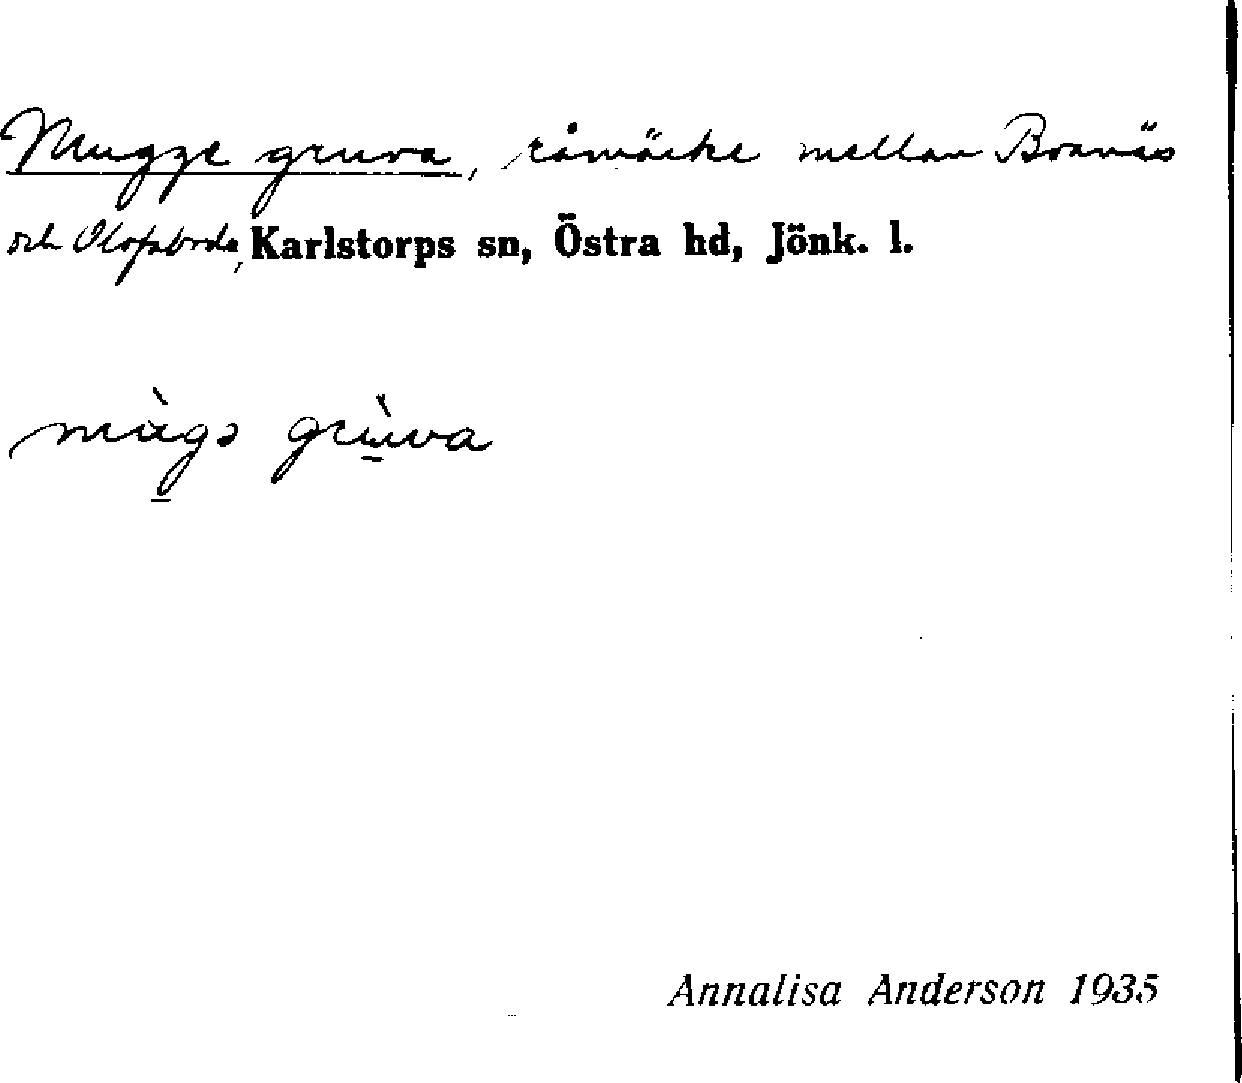 Mugge gruva, råmärke mellan Bonäs
och Olofsboda, Karlstorps sn, Östra hd, Jönk. l.
mùgə grùva
Annalisa Anderson 1935